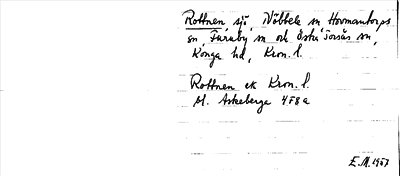 Rottnen sjö, Nöbbele sn Hormantorps
sn, Furuby sn och Östra Torsås sn,
Konga hd, Kron. l.
Rottnen ek Kron. l.
bl. Askeberga 4F8a
E.M. 1957